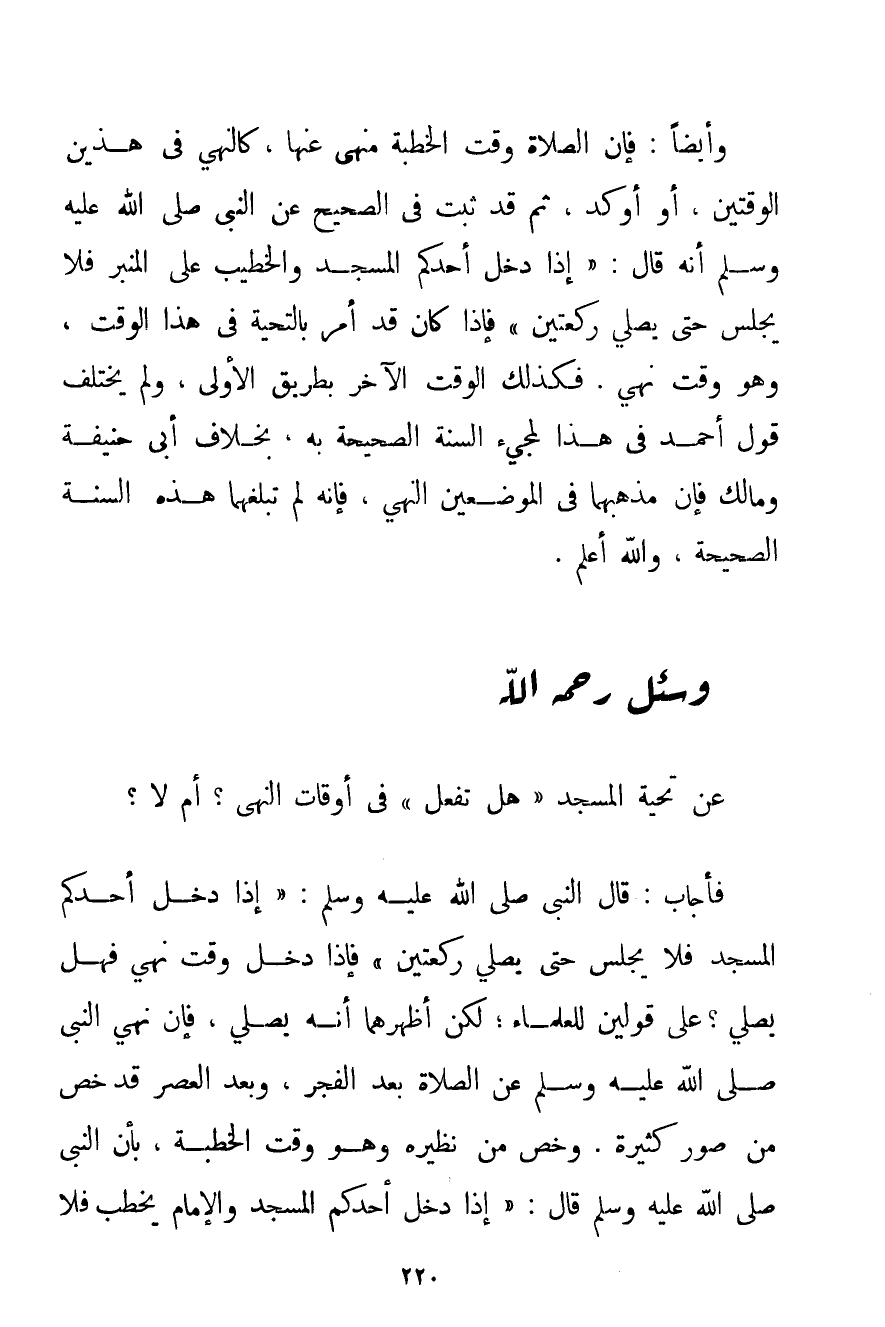 وأيضاً : فإن الصلاة وقت الخطبة منهى عنها ، كالنهي فى هـذين
الوقتين ، أو أوكد ، ثم قد ثبت فى الصحيح عن النبى صلى الله عليه
وسـلم أنه قال : « إذا دخل أحدكم المسجـد والخطيب على المنبر فلا
يجلس حتى يصلي ركعتين » فإذا كان قد أمر بالتحية فى هذا الوقت ،
وهو وقت نهي . فكذلك الوقت الآخر بطريق الأولى ، ولم يختلف
قول أحمـد فى هـذا لمجيء السنة الصحيحة به ، بخـلاف أبى حنيفـة
ومالك فإن مذهبهما فى الموضـعين النهي ، فإنه لم تبلغهما هـذه السنـة
الصحيحة ، والله أعلم .
وسئل رحمه الله
عن تحية المسجد « هل تفعل » فى أوقات النهى ؟ أم لا ؟
فأجاب : قال النبى صلى الله عليـه وسلم : « إذا دخـل أحـدكم
المسجد فلا يجلس حتى يصلي ركعتين » فإذا دخـل وقت نهي فهـل
يصلي ؟ على قولين للعلمـاء ؛ لكن أظهرهما أنـه يصـلي ، فإن نهي النبى
صـلى الله عليـه وسـلم عن الصلاة بعد الفجر ، وبعد العصر قد خص
من صور كثيرة . وخص من نظيره وهـو وقت الخطبـة ، بأن النبى
صلى الله عليه وسلم قال : « إذا دخل أحدكم المسجد والإمام يخطب فلا
٢٢٠